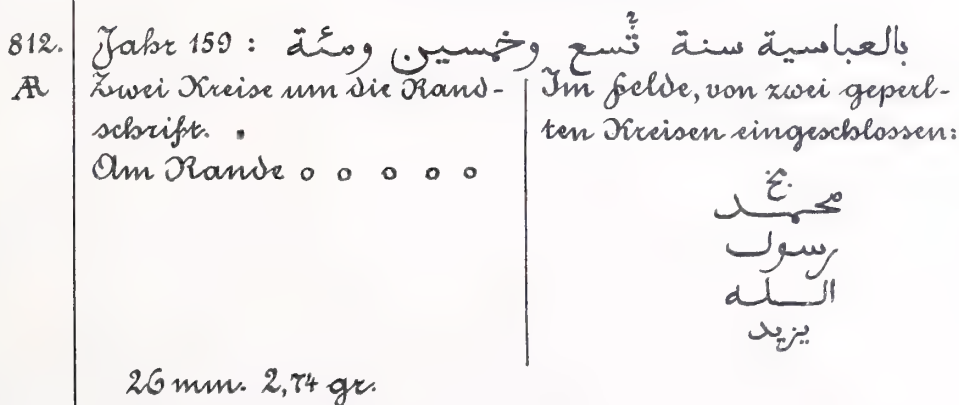 812. Jahr 159 : بالعباسية سنة تسع ? وخمسين ومئة
AR Zwei Kreise um die Rand-
schrift.
Am Rande o o o o o
Im Felde, von zwei geperl-
ten Kreisen eingeschlossen:
بخ
محمد
رسول
الله
يزيد
26 mm. 2,74 gr.